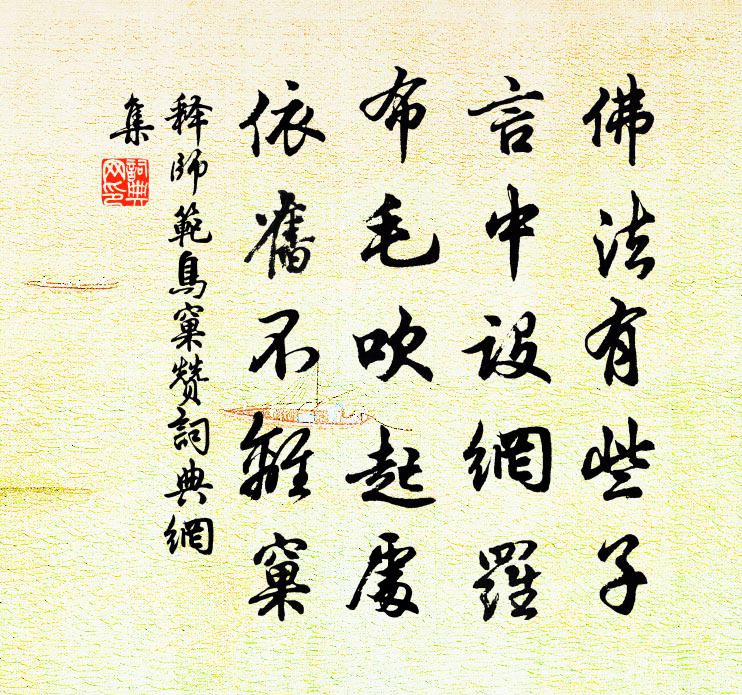 佛法有些子
言中设網羅
布毛吹起處
依舊不離窠
释師範鳥窠赞詞典網
集
詞典网印